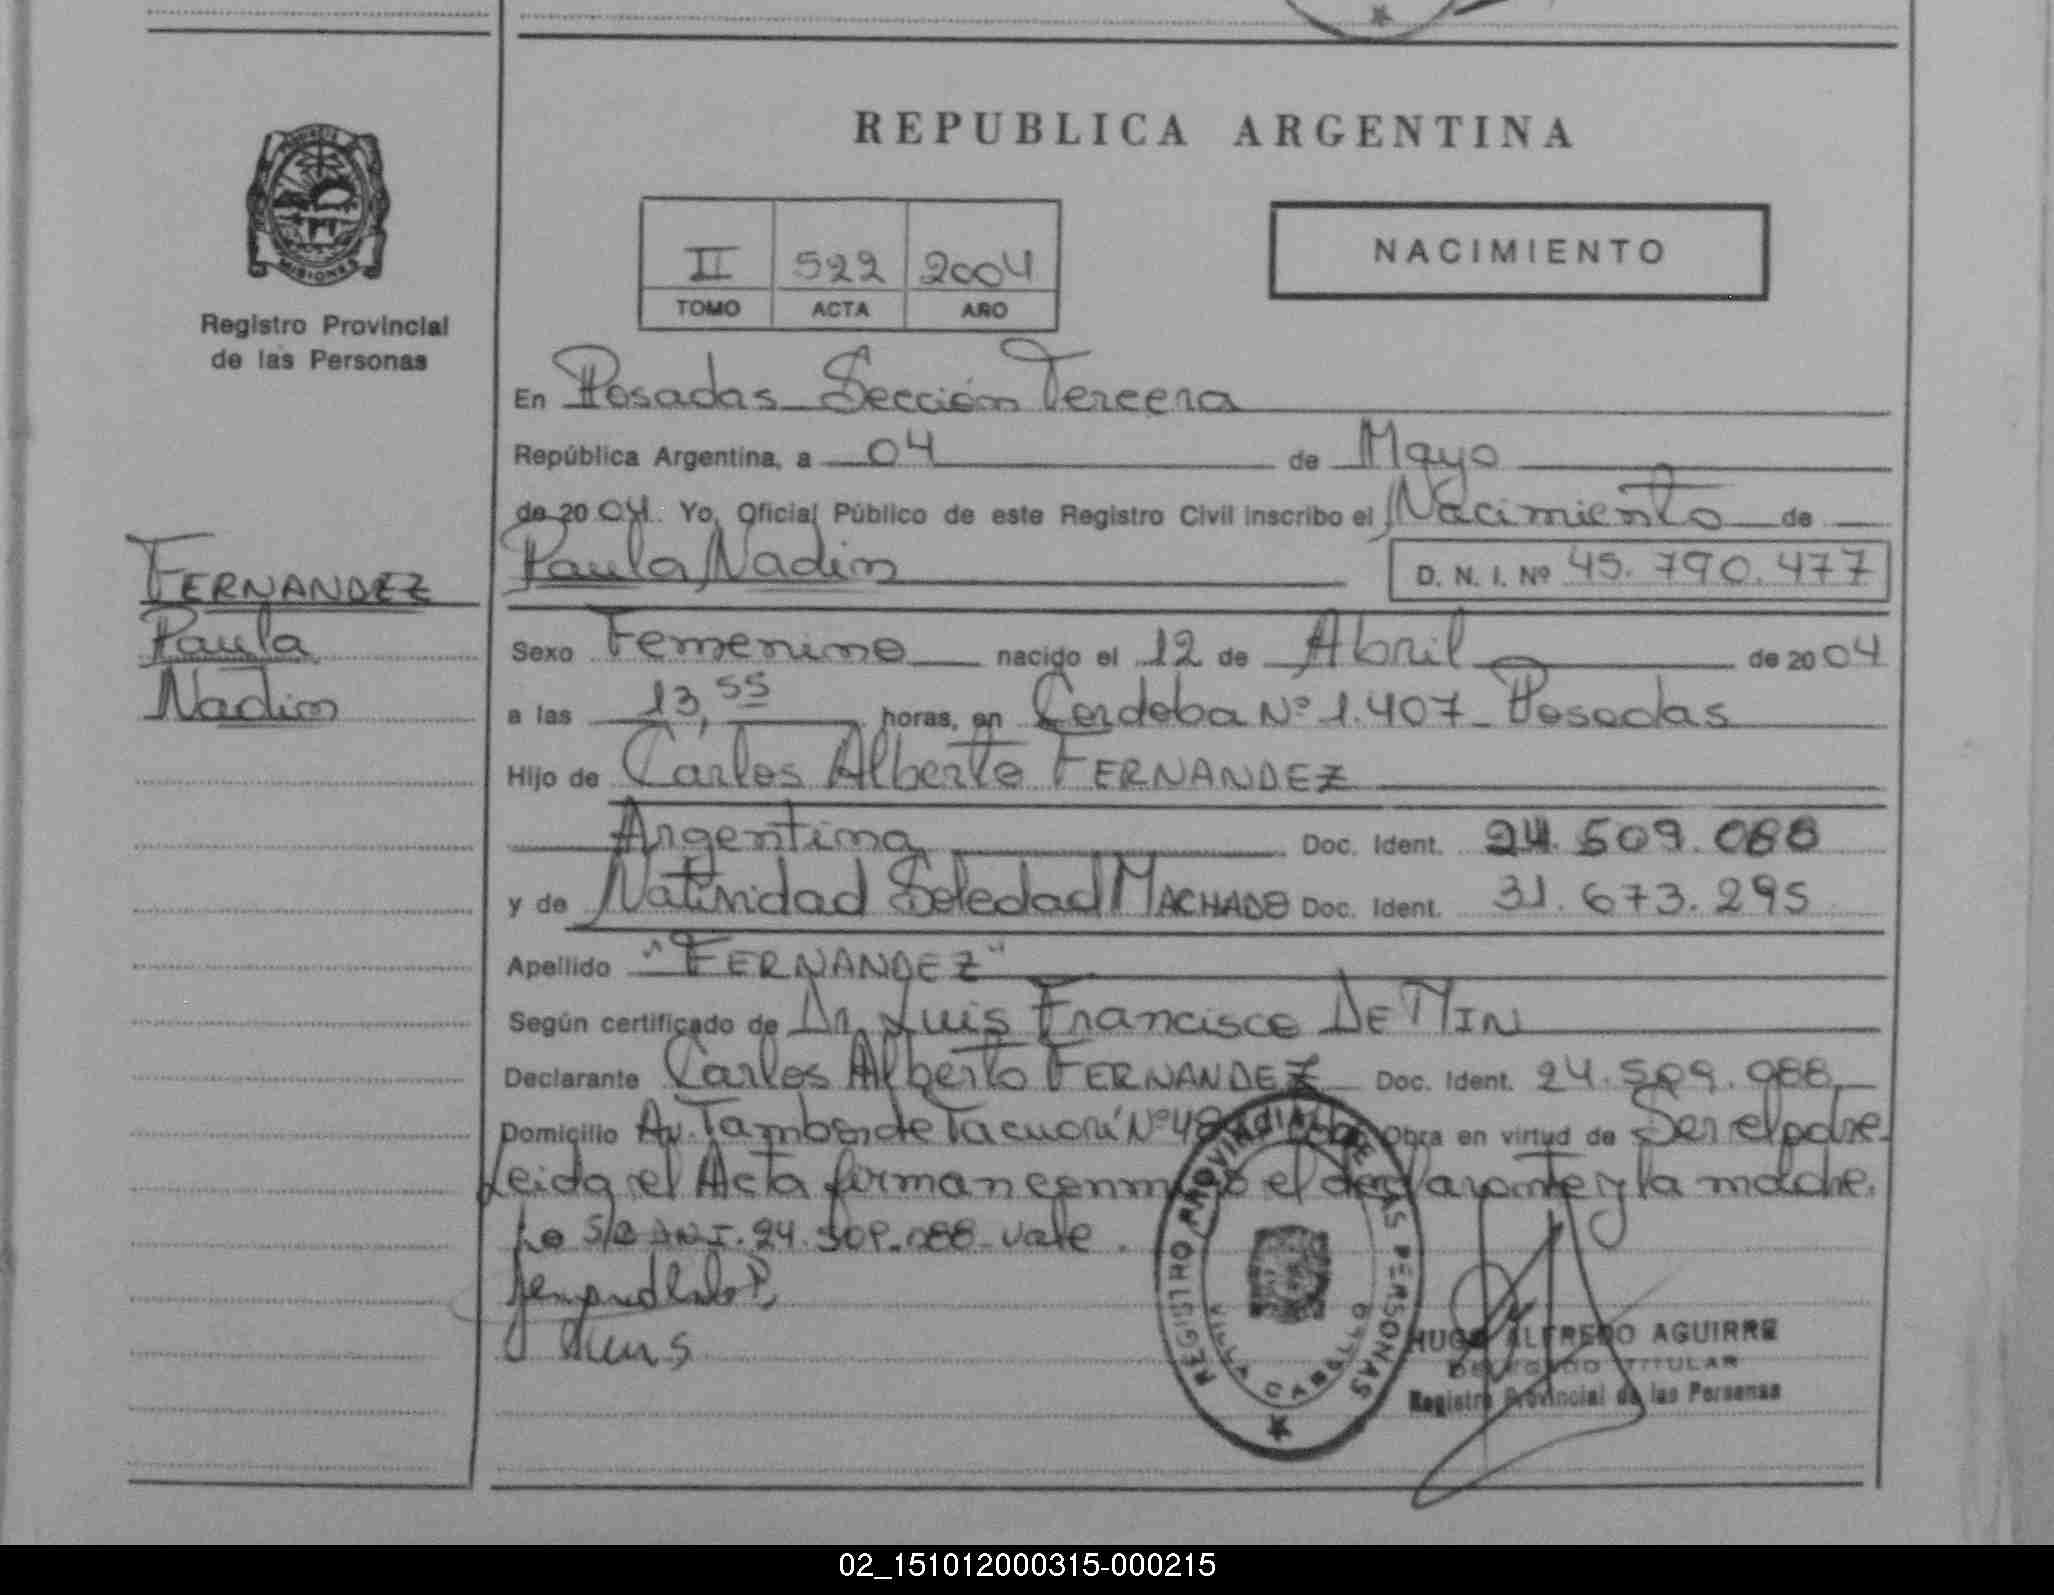 REPUBLICA ARGENTINA
MISIONES
Registro Provincial
de las Personas
II 522 2004
TOMO ACTA AÑO
NACIMIENTO
En Posadas Sección Tercera
República Argentina, a 04 de Mayo
de 2004. Yo, Oficial Público de este Registro Civil inscribo el Nacimiento de
Paula Nadin D. N. I. Nº 45.790.477
FERNANDEZ
Paula
Nadin
Sexo Femenino nacido el 12 de Abril de 2004
a las 13,55 horas, en Cordoba Nº 1.407 - Posadas
Hijo de Carlos Alberto FERNANDEZ
Argentina Doc. Ident. 24.509.088
y de Natividad Soledad MACHADO Doc. Ident. 31.673.295
Apellido "FERNANDEZ"
Según certificado de Dr. Luis Francisco DE MIN
Declarante Carlos Alberto FERNANDEZ Doc. Ident. 24.509.088
Domicilio Av. Tambor de Tacuarí Nº Obra en virtud de Ser el padre
Leida el Acta firman conmigo el declarante y la madre.
Lo S/B DNI. 24.509.088 vale.
REGISTRO PROVINCIAL DE LAS PERSONAS
VILLA CABELLO
HUGO ALFREDO AGUIRRE
DELEGADO TITULAR
Registro Provincial de las Personas
02_151012000315-000215